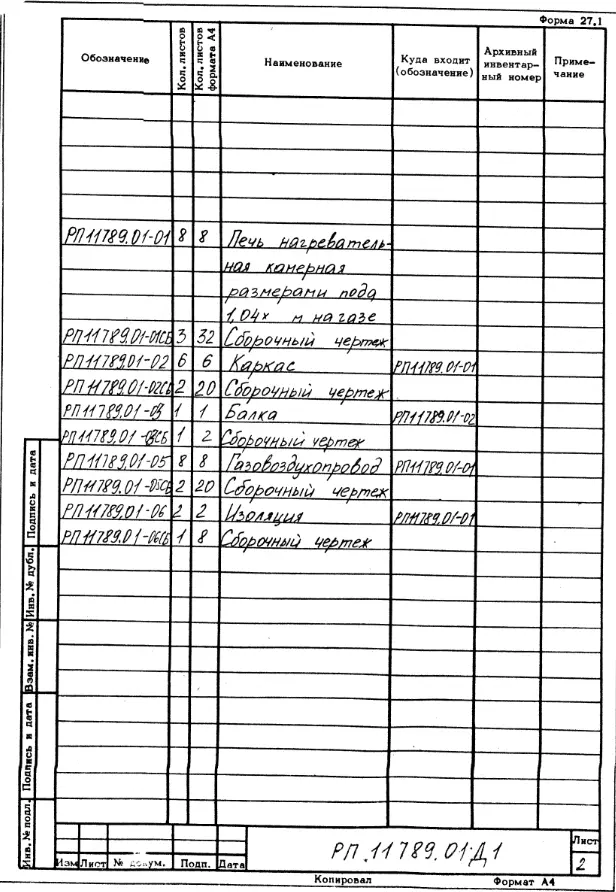 Форма 27.1
Обозначение Кол. листов Кол. листов формата А4 Наименование Куда входит (обозначение) Архивный инвентарный номер Примечание
РП11789.01-01 8 8 Печь нагреватель-
ная камерная
размерами пода
1,04х м на газе
РП11789.01-01СБ 3 32 Сборочный чертеж
РП11789.01-02 6 6 Каркас РП11789.01-01
РП11789.01-02СБ 2 20 Сборочный чертеж
РП11789.01-03 1 1 Балка РП11789.01-02
РП11789.01-03СБ 1 2 Сборочный чертеж
РП11789.01-05 8 8 Газовоздухопровод РП11789.01-01
РП11789.01-05СБ 2 20 Сборочный чертеж
РП11789.01-06 2 2 Изоляция РП11789.01-01
РП11789.01-06СБ 1 8 Сборочный чертеж
Подпись и дата
Инв. № дубл.
Взам. инв. №
Подпись и дата
Инв. № подл.
РП.11789.01.Д1
Лист
2
Изм Лист № докум. Подп. Дата
Копировал Формат А4